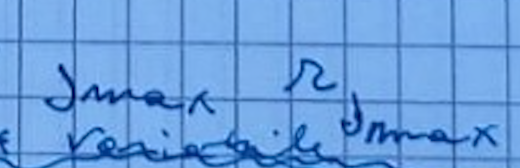 Jmax r Jmax
variabile